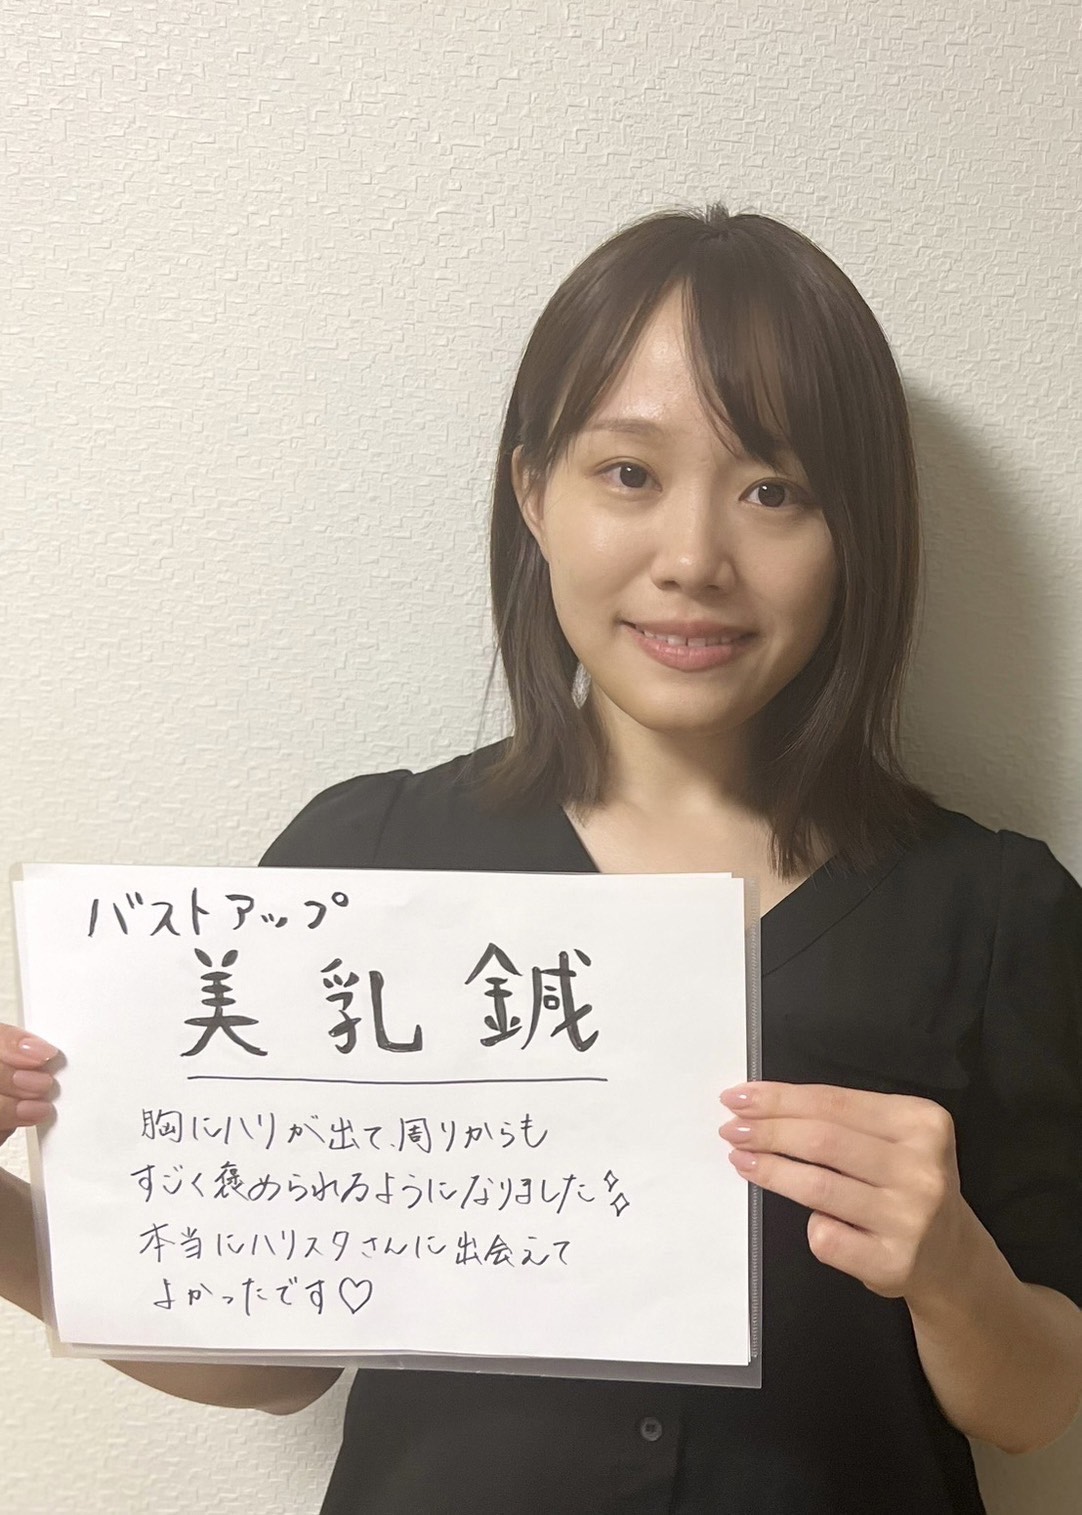 バストアップ
美乳鍼
胸にハリが出て、周りからも
すごく褒められるようになりました
本当にハリスタさんに出会えて
よかったです♡